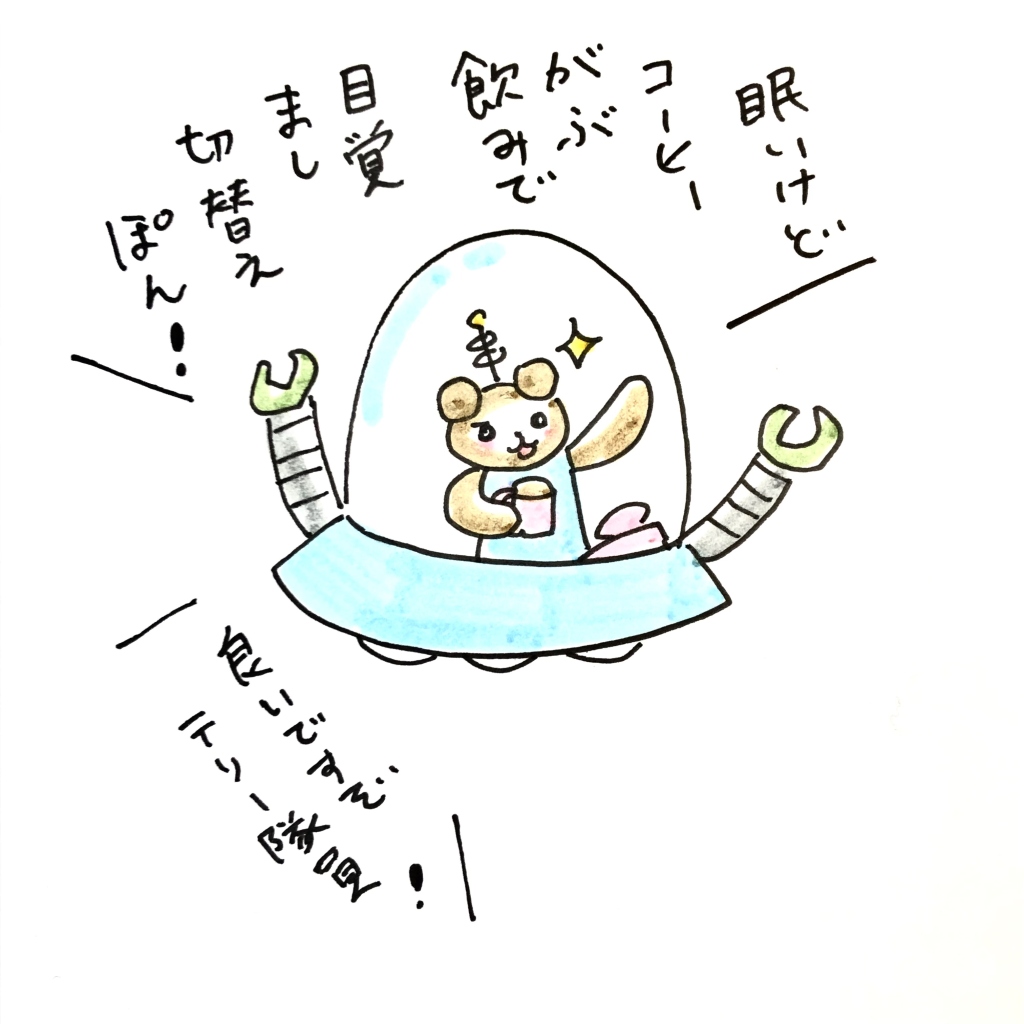 眠いけど
コーヒー
がぶ
飲みで
目覚
まし
切替え
ぽん!
良いですぞ
テリー隊員!